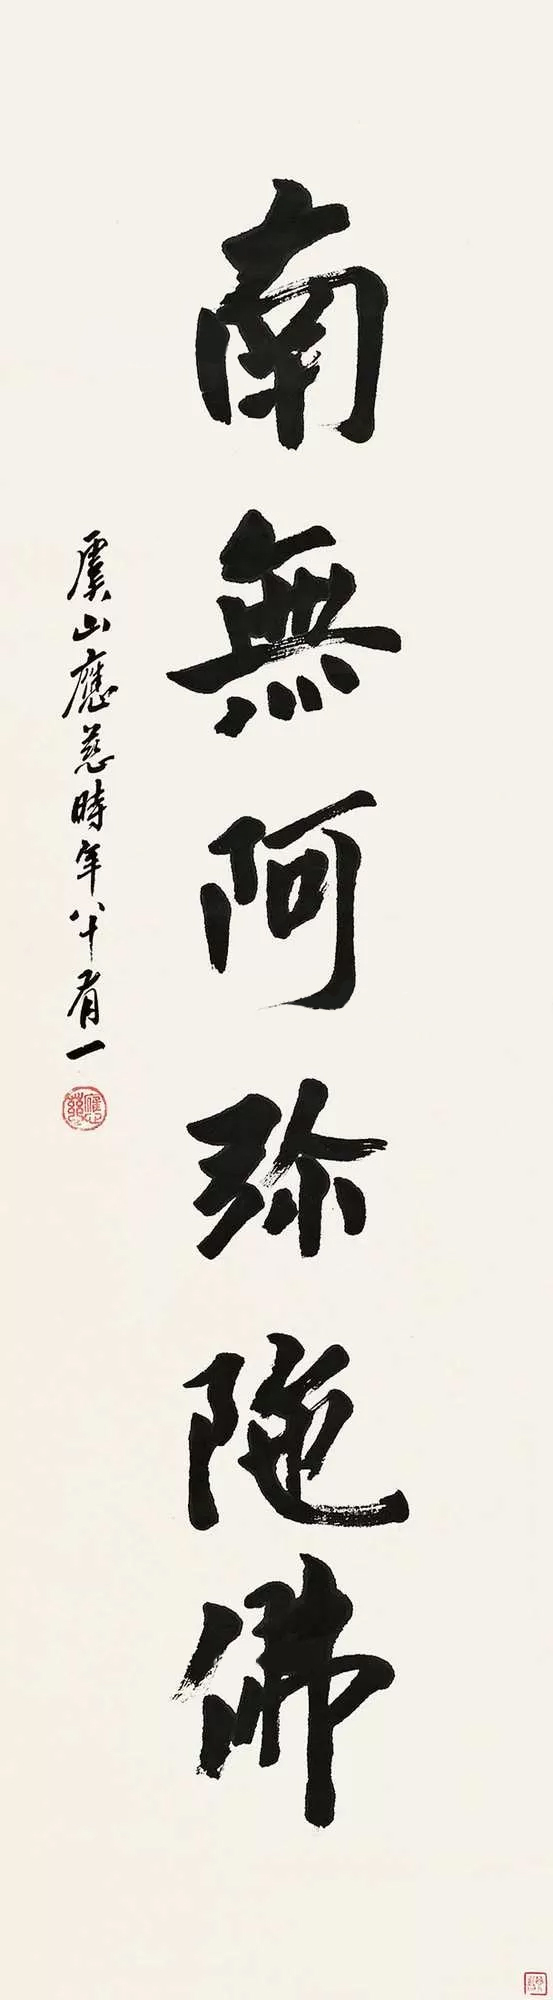 南無阿弥陀佛
虞山應慈時年八十有一
應慈